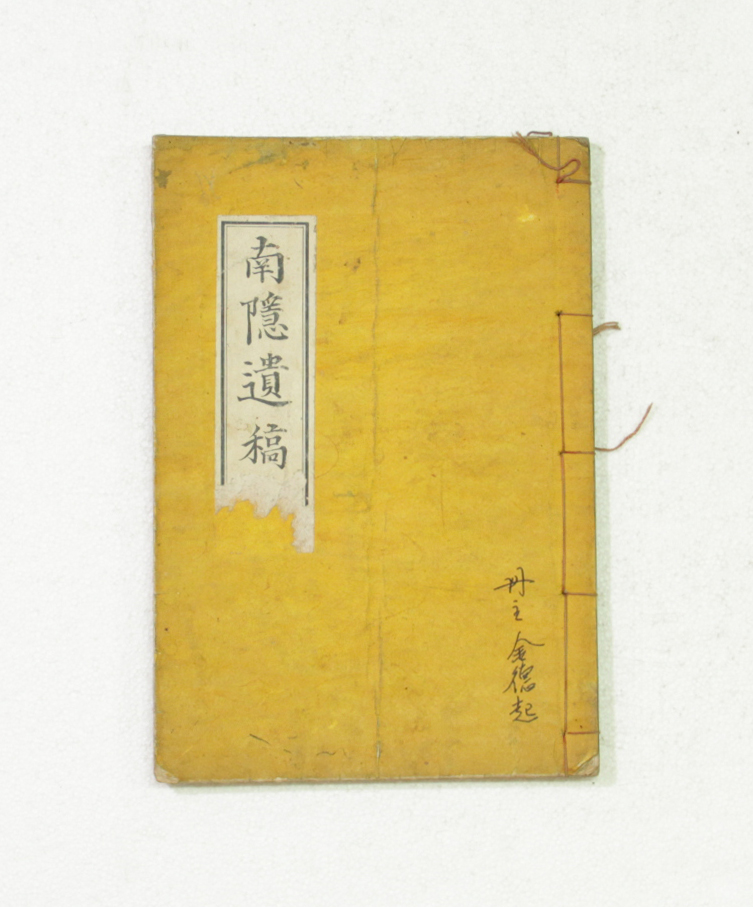 南隱遺稿
冊主 金德起